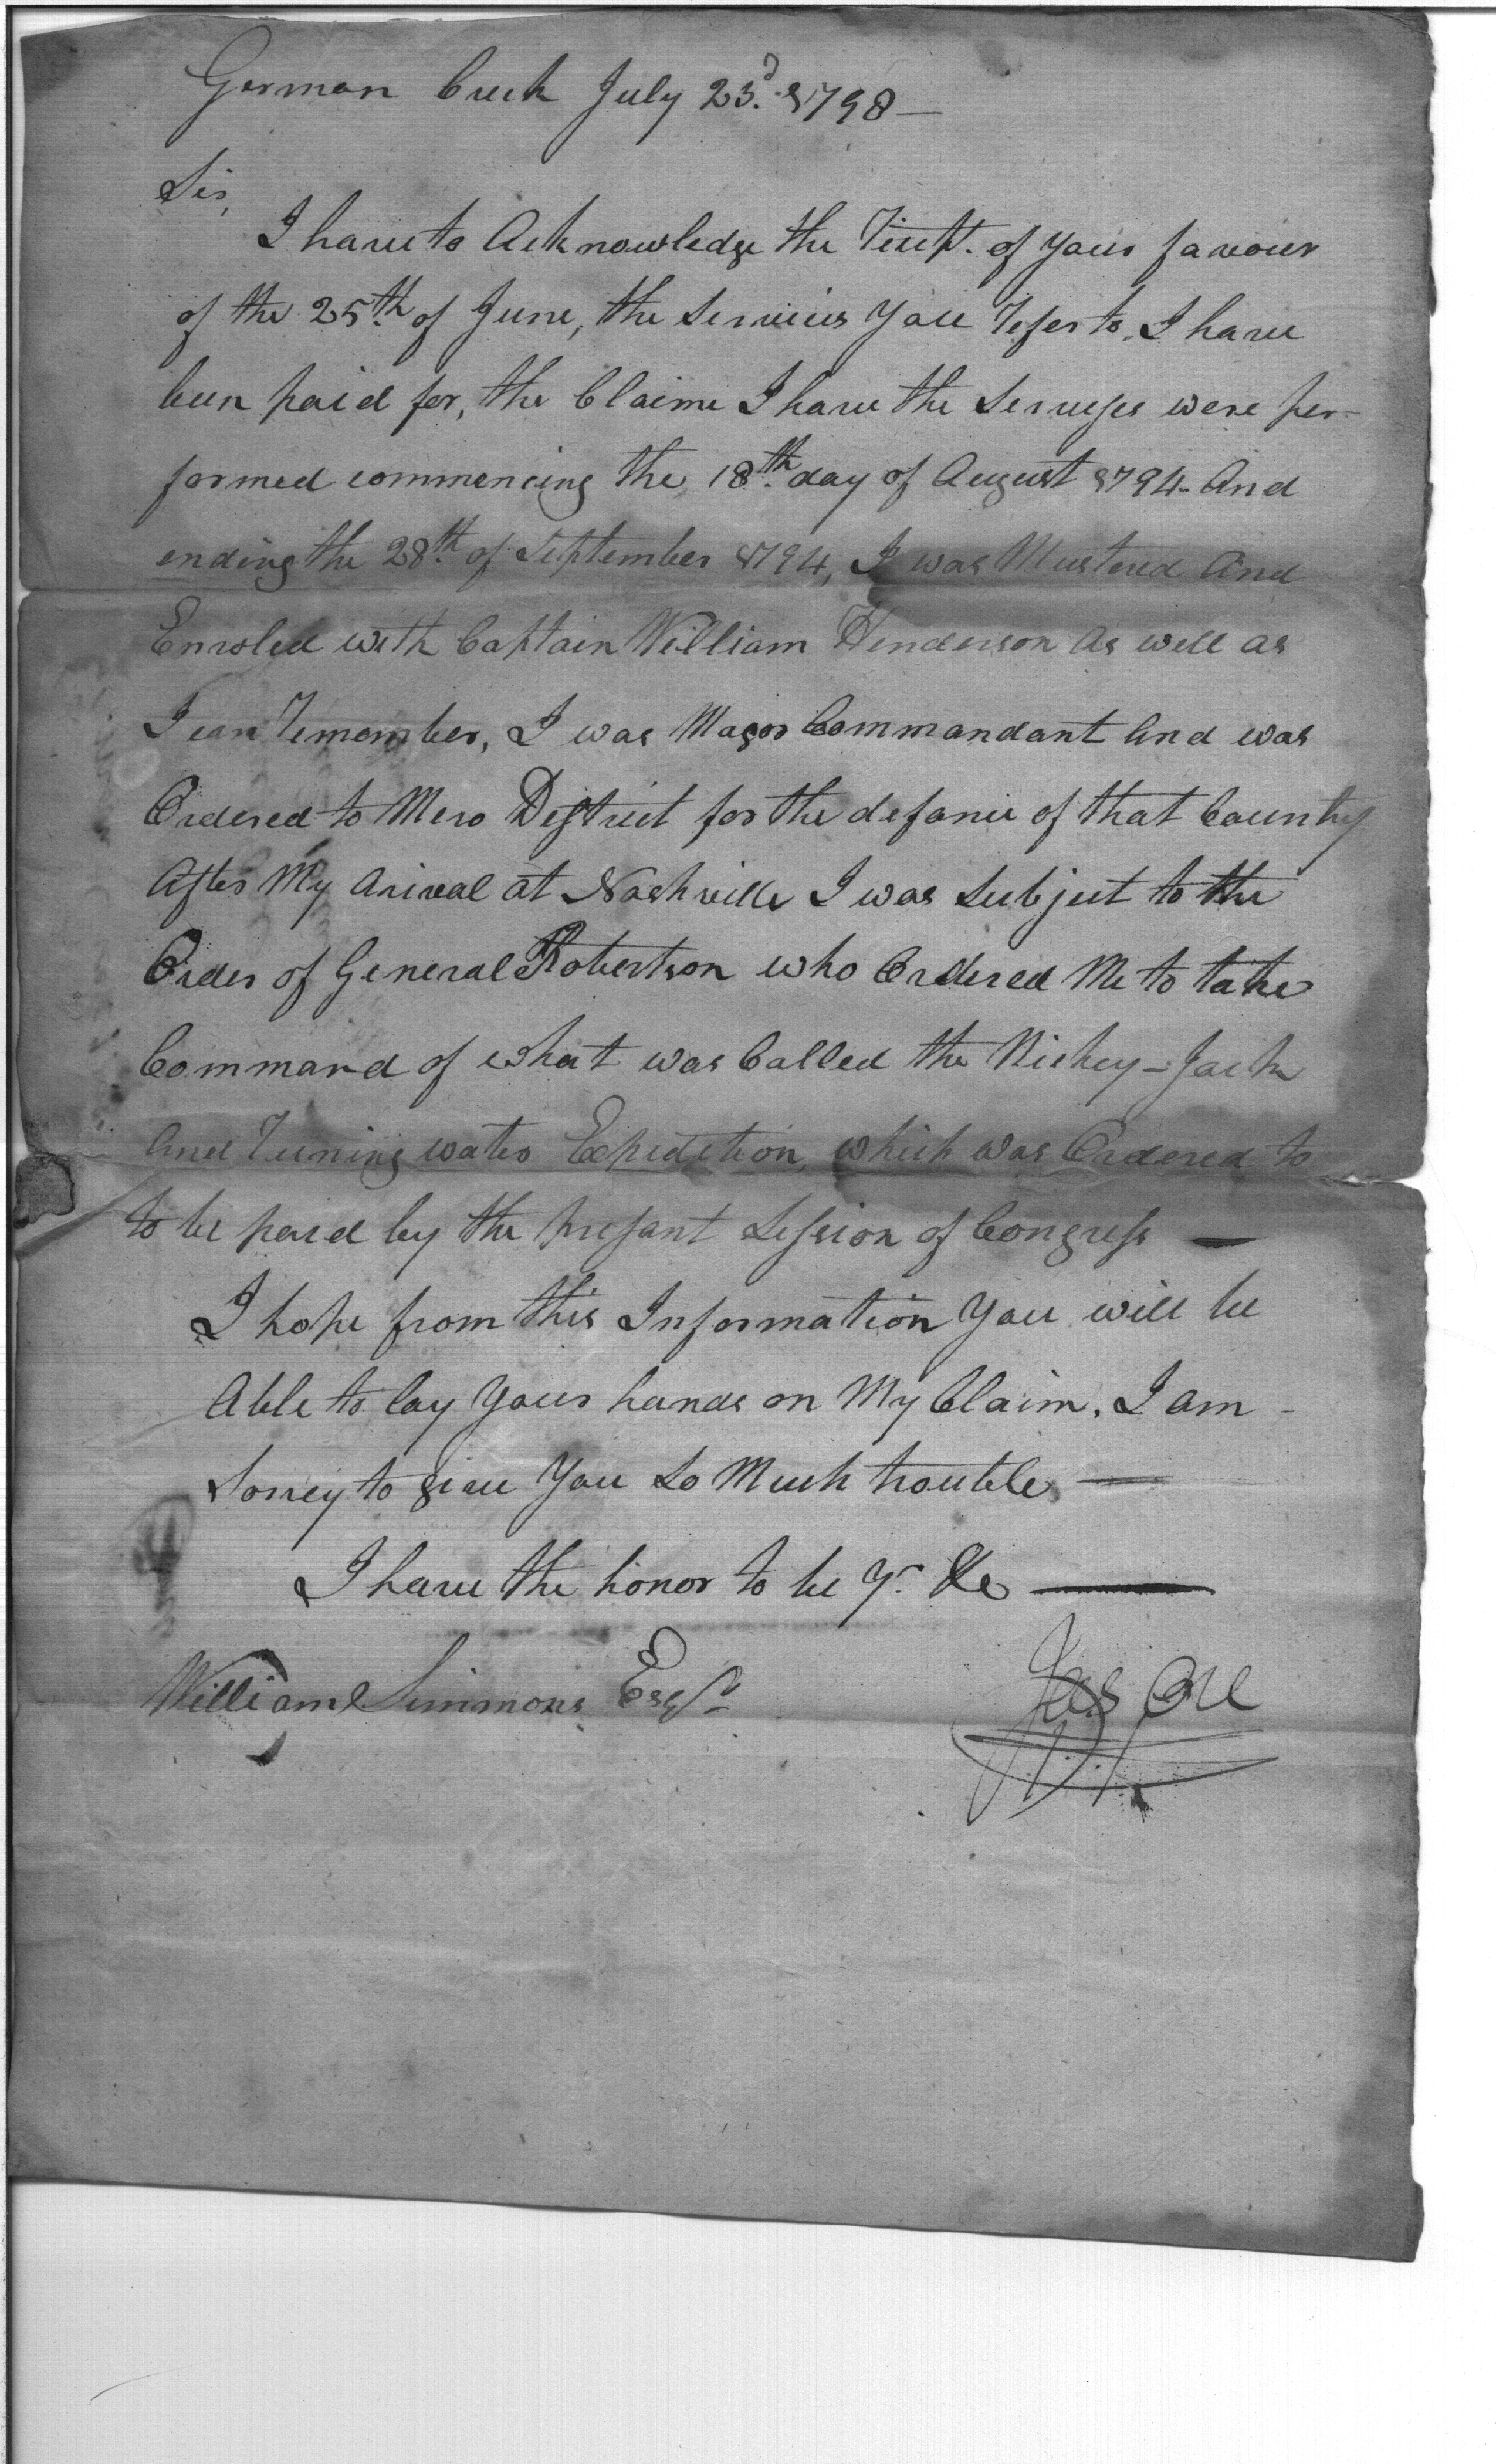 German Creek July 23.d 1798 —
Sir,
I have to Acknowledge the receipt. of your favour
of the 25th. of June, the Services you refer to, I have
been paid for, the Claime I have the Servises were per-
formed commencing the 18th. day of August 1794 - And
ending the 28th. of September 1794, I was Mustered And
Enroled with Captain William Henderson As well as
I can remember, I was Major Commandant And was
Ordered to Mero District for the defance of that Country
After My Arival at Nashville I was Subject to the
Order of General Robertson who Ordered Me to take
Command of what was Called the Nickey - Jack
And runing water Expedition, which was Ordered to
to be paid by the presant Session of Congress —
I hope from this Information You will be
Able to lay your hands on My Claim, I am -
Sorrey to give You So Much trouble, —
I have the honor to be yr. &c ———
William Simmons Esqr
Jas Ore